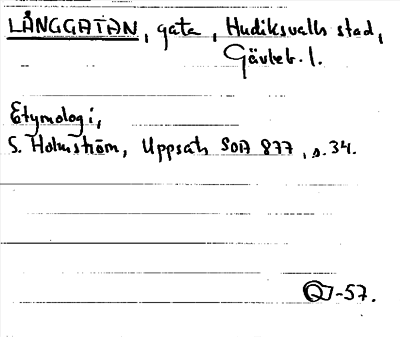 LÅNGGATAN, gata, Hudiksvalls stad,
Gävleb. l.
Etymologi,
S. Holmström, Uppsats SOA 877, s. 34.
-57.